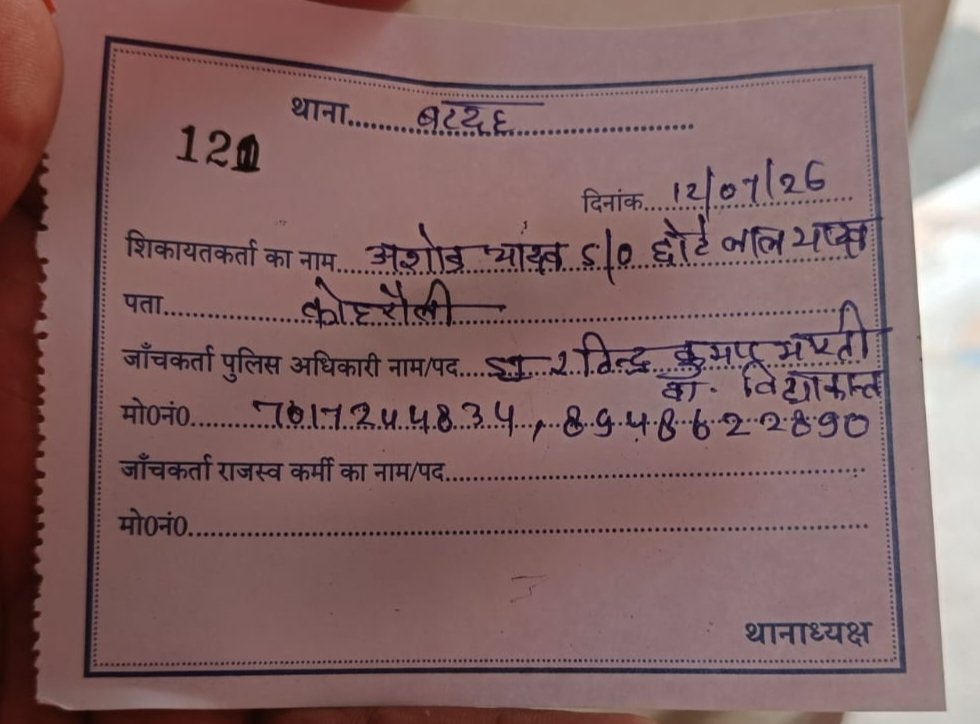 थाना बरदह
121
दिनांक 12/07/26
शिकायतकर्ता का नाम अशोक यादव S/O छोटे लाल यादव
पता कोहरौली
जाँचकर्ता पुलिस अधिकारी नाम/पद रविन्द्र कुमार भारती
का. विद्याकान्त
मो0नं0 7017244834, 8948622890
जाँचकर्ता राजस्व कर्मी का नाम/पद
मो0नं0
थानाध्यक्ष